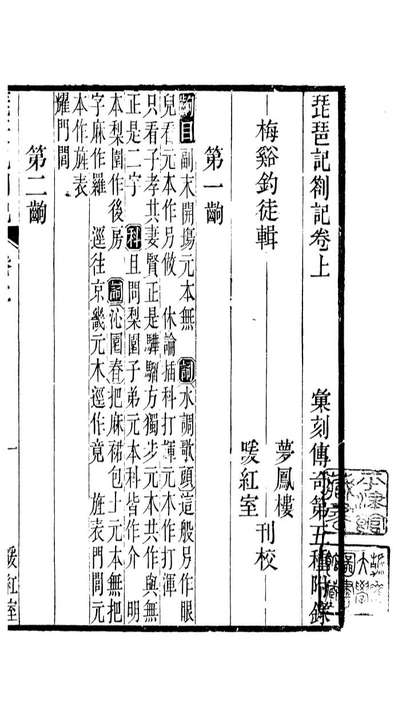 琵琶記劄記卷上
彙刻傳奇第五種附錄
梅谿釣徒輯
夢鳳樓
暖紅室
刊校
第一齣
副末開塲元本無 詞水調歌頭這般另作眼
兒看元本作另做 休論插科打諢元本作打渾
只看子孝共妻賢正是驊騮方獨步元本共作與無
正是二字 科且問梨園子弟元本科皆作介 明
本梨園作後房 詞沁園春把麻裙包土元本無把
字麻作羅 逕往京畿元本逕作竟 旌表門閭元
本作旌表
耀門閭
第二齣
一
暖紅室